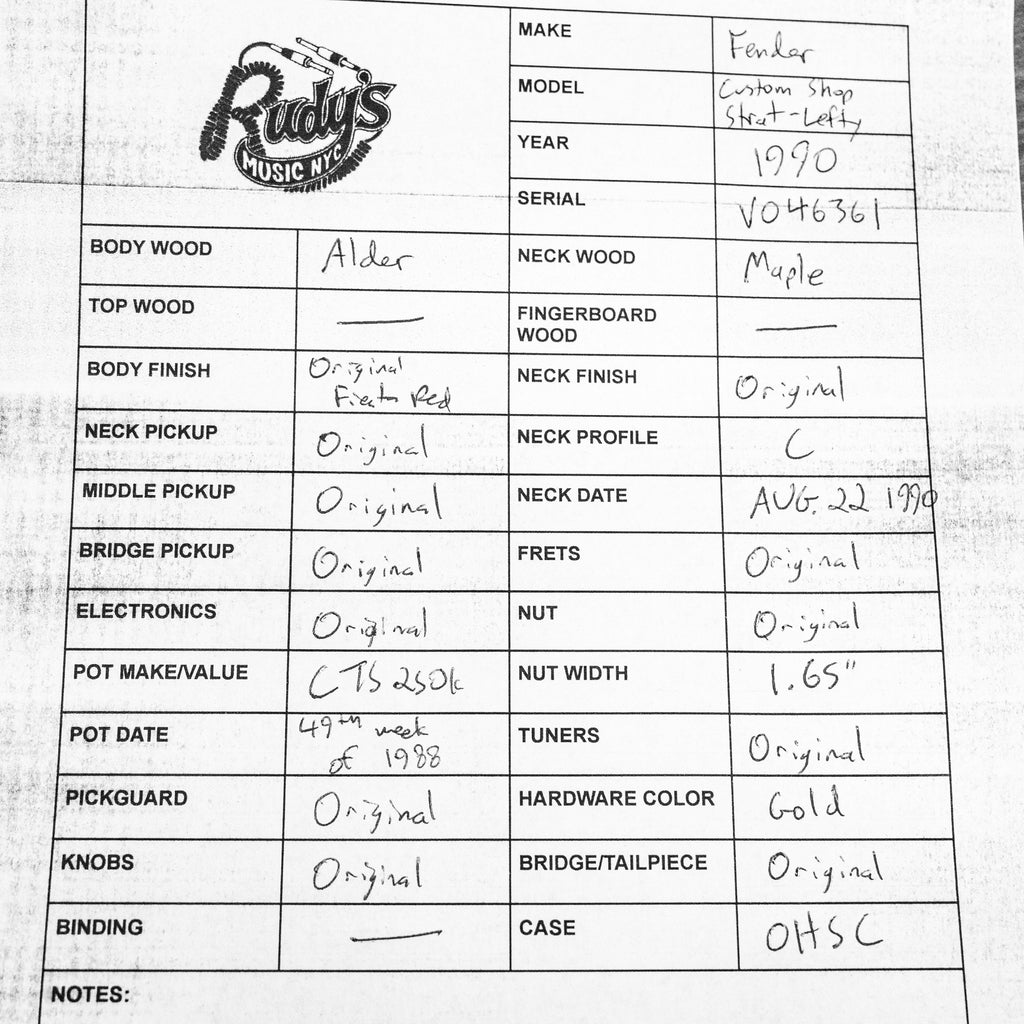 Rudy's
MUSIC NYC
MAKE
Fender
MODEL
Custom Shop
Strat-Lefty
YEAR
1990
SERIAL
V046361
BODY WOOD
Alder
NECK WOOD
Maple
TOP WOOD
—
FINGERBOARD
WOOD
—
BODY FINISH
Original
Fiesta Red
NECK FINISH
Original
NECK PICKUP
Original
NECK PROFILE
C
MIDDLE PICKUP
Original
NECK DATE
AUG. 22 1990
BRIDGE PICKUP
Original
FRETS
Original
ELECTRONICS
Original
NUT
Original
POT MAKE/VALUE
CTS 250k
NUT WIDTH
1.65"
POT DATE
49th week
of 1988
TUNERS
Original
PICKGUARD
Original
HARDWARE COLOR
Gold
KNOBS
Original
BRIDGE/TAILPIECE
Original
BINDING
—
CASE
OHSC
NOTES: